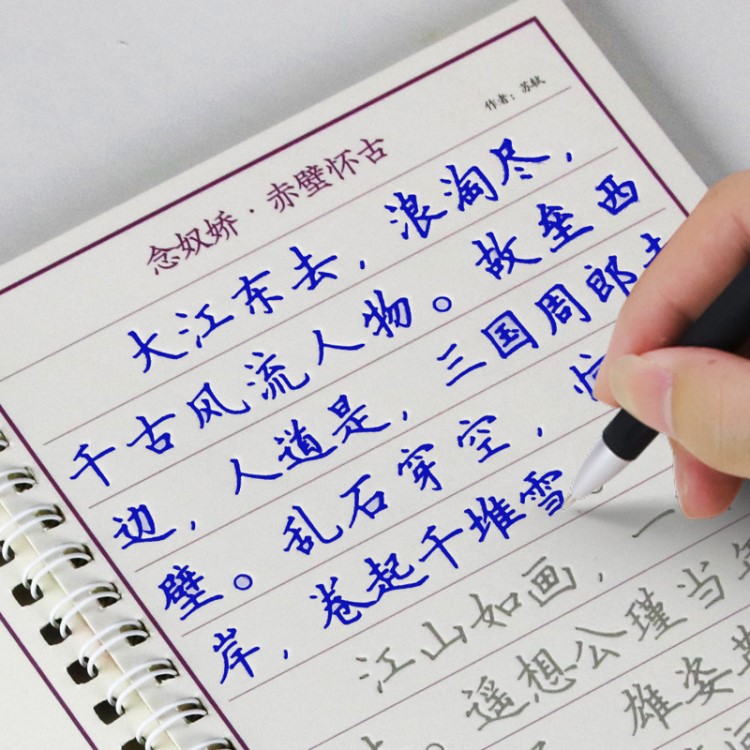 作者：苏轼
念奴娇·赤壁怀古
大江东去，浪淘尽，
千古风流人物。故垒西
边，人道是，三国周郎赤
壁。乱石穿空，惊
岸，卷起千堆雪。
江山如画，一
。遥想公瑾当年
雄姿英